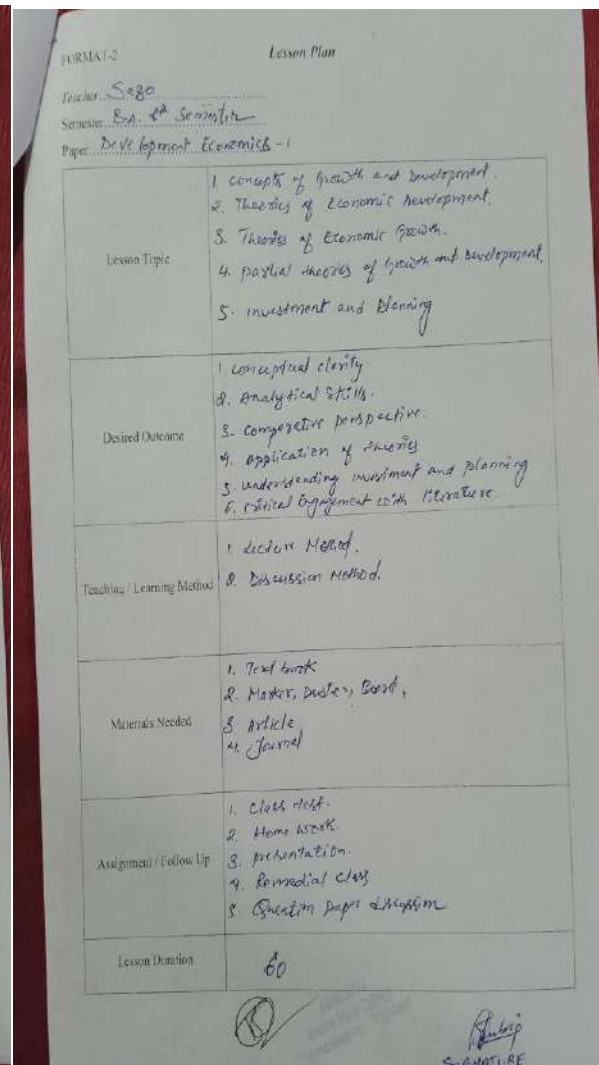 FORMAT-2
Lesson Plan
Teacher Sazo
Semester B.A. 6th Semester
Paper Development Economics - 1
Lesson Topic
1. concepts of Growth and Development.
2. Theories of Economic Development.
3. Theories of Economic Growth.
4. partial theories of Growth and Development.
5. investment and Planning
Desired Outcome
1. conceptual clarity.
2. Analytical Skills.
3. comparative perspective.
4. application of theories
5. understanding investment and planning
6. critical Engagement with literature.
Teaching / Learning Method
1. Lecture Method.
2. Discussion Method.
Materials Needed
1. Text book
2. Marker, Duster, Board,
3. Article
4. Journal
Assignment / Follow Up
1. Class test.
2. Home work.
3. presentation.
4. Remedial class
5. Question paper discussion
Lesson Duration
60
SIGNATURE